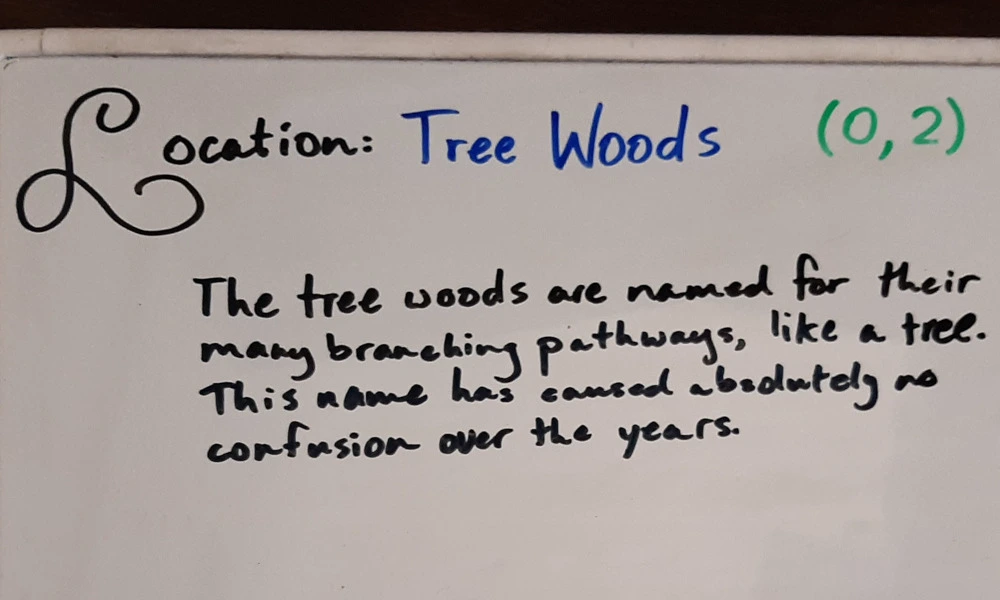 Location: Tree Woods (0,2)
The tree woods are named for their
many branching pathways, like a tree.
This name has caused absolutely no
confusion over the years.